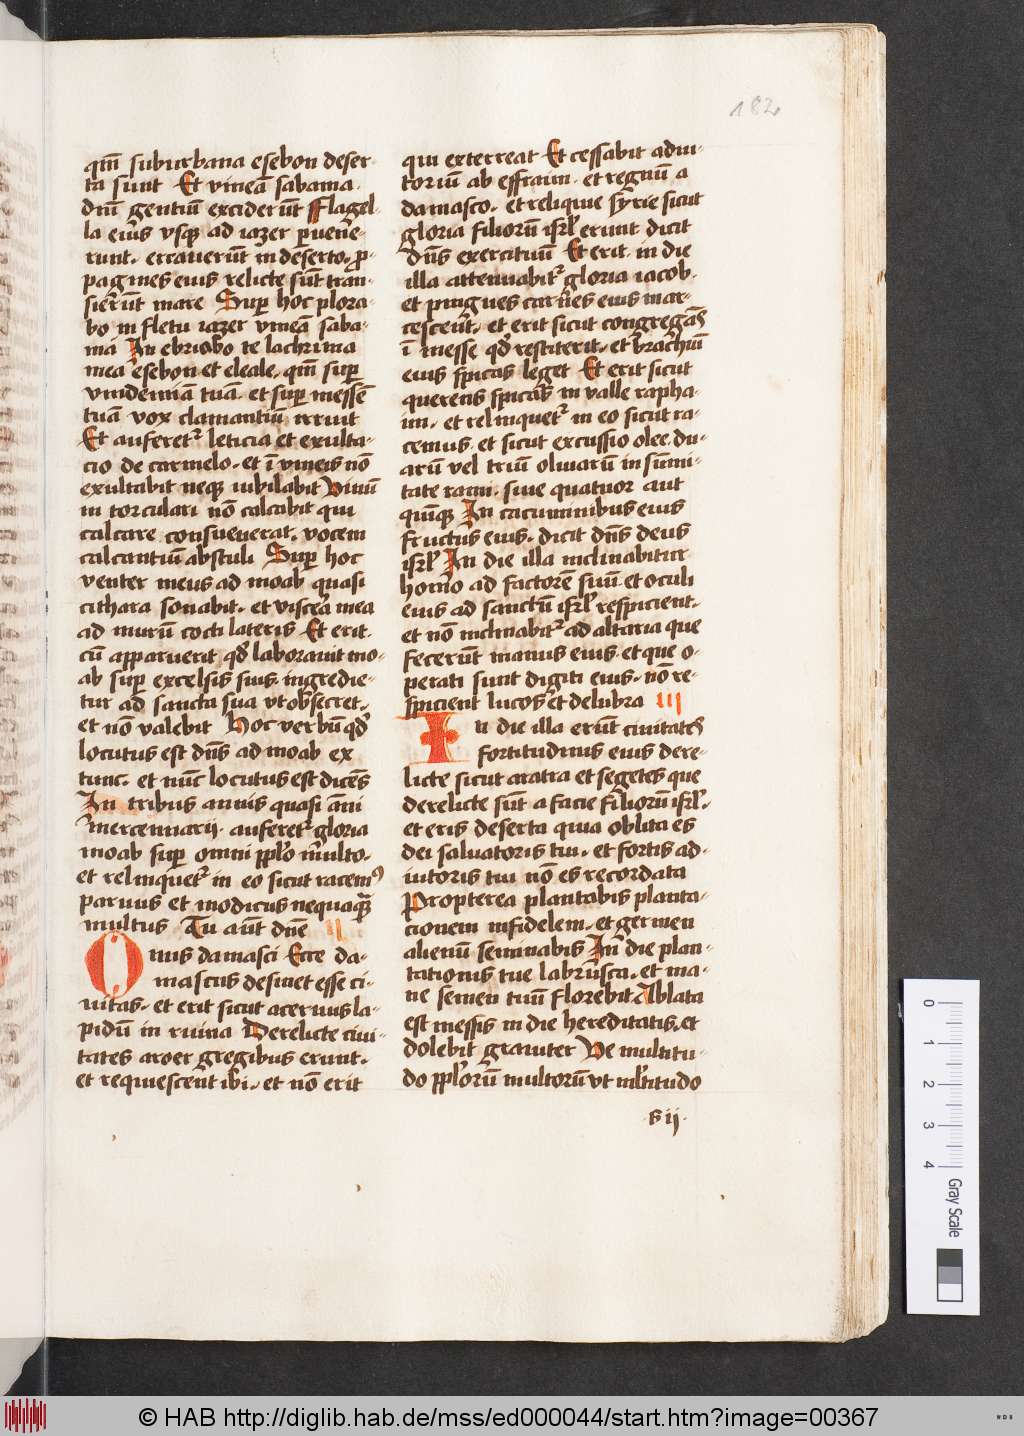 182
qm̄ suburbana esebon deser-
ta sunt Et vineā sabama.
dn̄i gentiū exciderūt Flagel-
la eius vsq ad iazer peruene-
runt. errauerūt in deserto. p-
pagines eius relicte sūt tran-
sierūt mare Sup hoc plora-
bo in fletu iazer vineā saba-
ma In ebriabo te lachrima
mea esebon et eleale. qm̄ sup
vindemiā tuā. et sup messē
tuā vox clamantiū irruit
Et auferet᷑ leticia et exulta-
cio de carmelo. et ī vineis nō
exultabit neq iubilabit Vinū
in torculari nō calcabit qui
calcare consueuerat. vocem
calcantiū abstuli Sup hoc
venter meus ad moab quasi
cithara sonabit. et viscera mea
ad murū cocti lateris Et erit.
cū apparuerit qd laborauit mo-
ab sup excelsis suis. ingredie-
tur ad sancta sua vt obsecret.
et nō valebit Hoc verbū qd
locutus est dn̄s ad moab ex
tunc. et nūc locutus est dicēs
In tribus annis quasi āni
mercennarij. auferet᷑ gloria
moab sup omni pplo multo.
et relinquet᷑ in eo sicut racemꝰ
paruus et modicus nequaqā
multus Tu aūt dn̄e II
Onus damasci Ecce da-
mascus desinet esse ci-
uitas. et erit sicut aceruus la-
pidū in ruina Derelicte ciui-
tates aroer gregibus erunt.
et requiescent ibi. et nō erit
qui exterreat Et cessabit adiu-
toriū ab effraim. et regnū a
damasco. et reliquie syrie sicut
gloria filiorū isrl erunt dicit
dn̄s exercituū Et erit. in die
illa attenuabit᷑ gloria iacob.
et pingues carnes eius mar-
cescent. et erit sicut congregās
ī messe qd restiterit. et brachiū
eius spicas leget Et erit sicut
querens spicas in valle rapha-
im. et relinquet᷑ in eo sicut ra-
cemus. et sicut excussio olee. du-
arū vel triū oliuarū in sūmi-
tate rami. siue quatuor aut
quīq In cacuminibus eius
fructus eius. dicit dn̄s deus
isrl In die illa inclinabitur
homo ad factorē suū et oculi
eius ad sanctū isrl respicient.
et nō inclinabit᷑ ad altaria que
fecerūt manus eius. et que o-
perati sunt digiti eius. nō re-
spicient lucos et delubra III
In die illa erūt ciuitates
fortitudinis eius dere-
licte sicut aratra et segetes que
derelicte sūt a facie filiorū isrl.
et eris deserta quia oblita es
dei saluatoris tui. et fortis ad-
iutoris tui nō es recordata
Propterea plantabis planta-
cionem infidelem. et germen
alienū seminabis In die plan-
tationis tue labrusca. et ma-
ne semen tuū florebit Ablata
est messis in die hereditatis. et
dolebit grauiter Ve multitu-
do pplorū multorū vt mltitudo
6 ij.
0 1 2 3 4
Gray Scale
© HAB http://diglib.hab.de/mss/ed000044/start.htm?image=00367